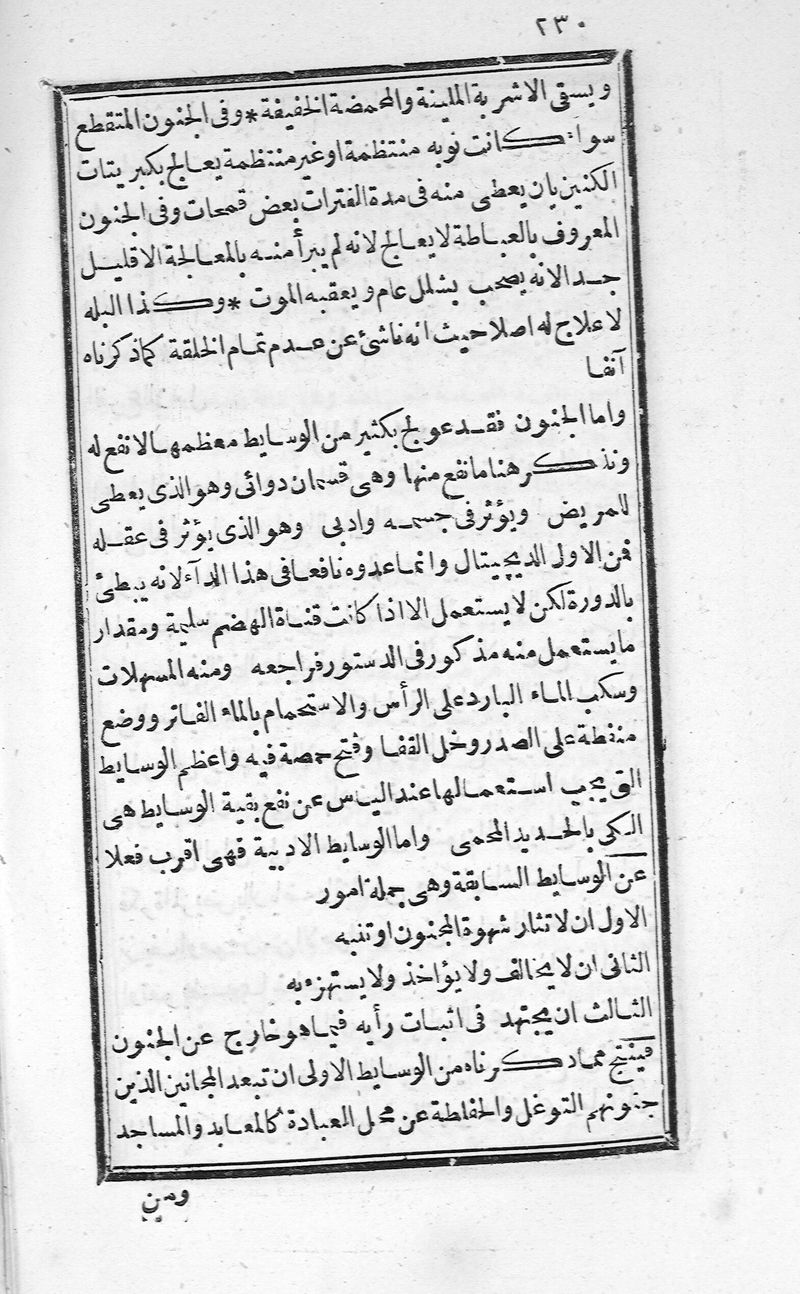 ٢٣٠
ويسقى الاشربة الملينة والمحمضة الخفيفة * وفى الجنون المتقطع
سواء كانت نوبه منتظمة او غير منتظمة يعالج بكبريتات
الكنين بان يعطى منه فى مدة الفترات بعض قمحات وفى الجنون
المعروف بالعباطة لا يعالج لانه لم يبرأ منه بالمعالجة الا قليل
جدا لانه يصحب بشلل عام ويعقبه الموت * وكذا البله
لا علاج له اصلا حيث انه ناشئ عن عدم تمام الخلقة كما ذكرناه
آنفا
واما الجنون فقد عولج بكثير من الوسايط معظمها لا نفع له
ونذكر هنا ما نفع منها وهى قسمان دوائى وهو الذى يعطى
للمريض ويؤثر فى جسمه وادبى وهو الذى يؤثر فى عقله
فمن الاول الديجيتال وانما عدوه نافعا فى هذا الدآء لانه يبطئ
بالدورة لكن لا يستعمل الا اذا كانت قناة الهضم سليمة ومقدار
ما يستعمل منه مذكور فى الدستور فراجعه ومنه المسهلات
وسكب الماء البارد على الرأس والاستحمام بالماء الفاتر ووضع
منفطة على الصدر وخل القفا وفتح حمصة فيه واعظم الوسايط
التى يجب استعمالها عند الياس عن نفع بقية الوسايط هى
الكى بالحديد المحمى واما الوسايط الادبية فهى اقرب فعلا
عن الوسايط السابقة وهى جملة امور
الاول ان لا تثار شهوة المجنون او تنبه
الثانى ان لا يخالف ولا يؤاخذ ولا يستهزء به
الثالث ان يجتهد فى اثبات رأيه فيما هو خارج عن الجنون
فينتج مماذكرناه من الوسايط الاولى ان تبعد المجانين الذين
جنونهم التوغل والخفاطة عن محل العبادة كالمعابد والمساجد
ومن